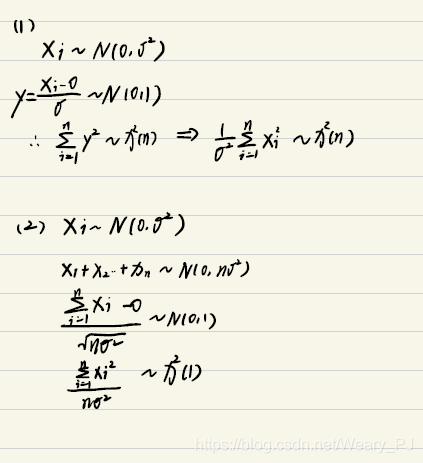 (1)
Xi ~ N(0,σ²)
y = (Xi-0)/σ ~ N(0,1)
∴ ∑_{i=1}^{n} y² ~ χ²(n) ⇒ 1/σ² ∑_{i=1}^{n} Xi² ~ χ²(n)
(2) Xi ~ N(0,σ²)
X₁+X₂..+Xn ~ N(0,nσ²)
(∑_{i=1}^{n} Xi - 0)/√(nσ²) ~ N(0,1)
(∑_{i=1}^{n} Xi²)/(nσ²) ~ χ²(1)
https://blog.csdn.net/Weary_PJ